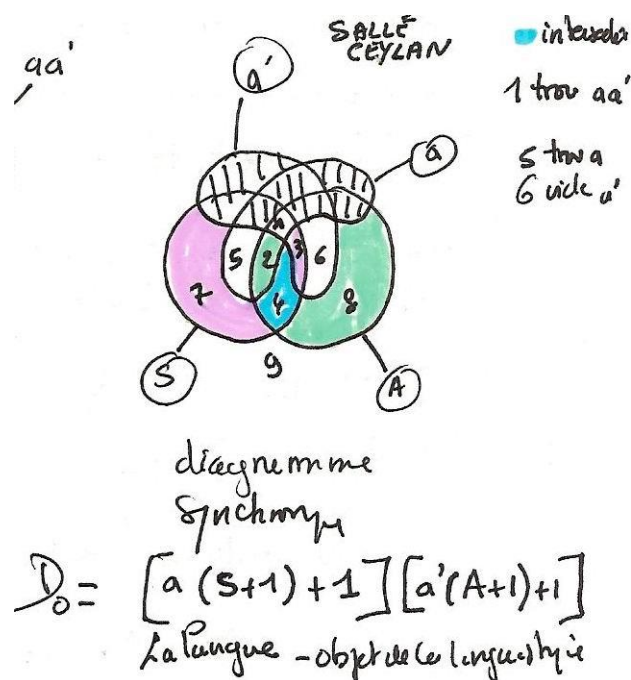 SALLE
CEYLAN
aa'
a'
1 trou aa'
a
5 trou a
6 vide a'
1
5 2 3 6
7 4 8
S 9 A
diagramme
synchronique
D₀ = [a (S+1) + 1] [a'(A+1)+1]
La langue - objet de la linguistique